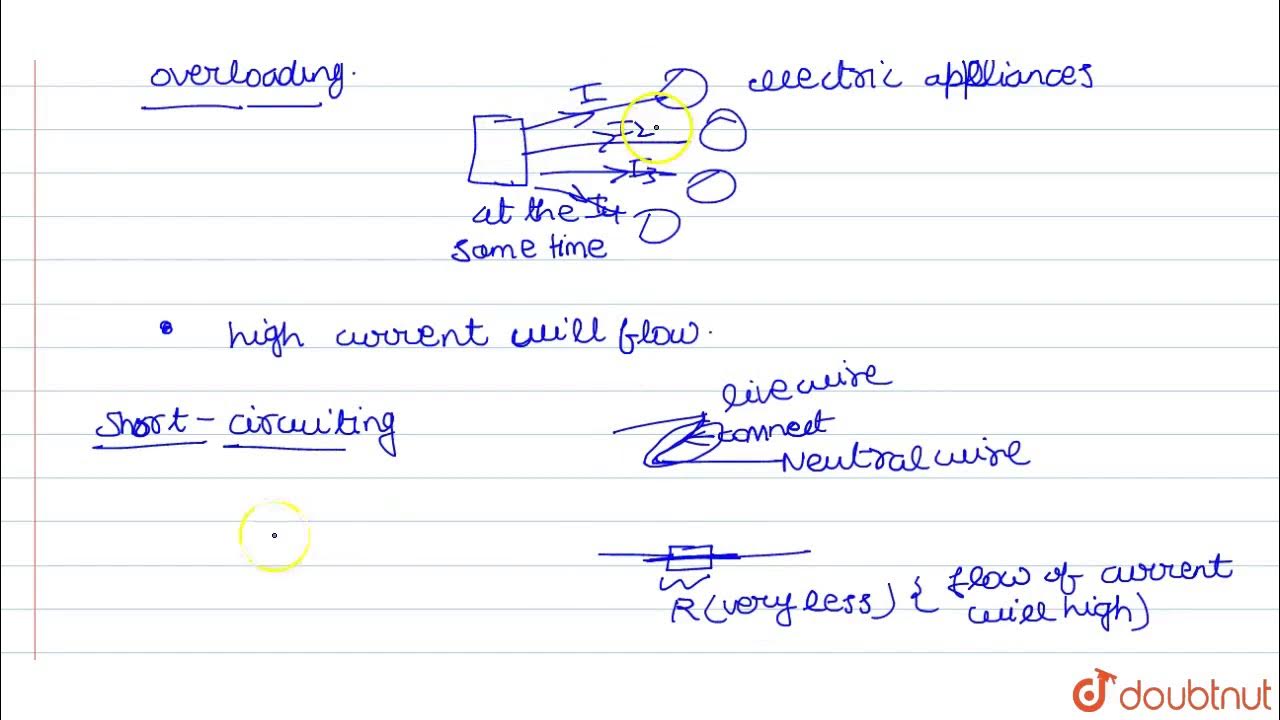 overloading.
electric appliances
I
I2
I3
I4
at the
same time
high current will flow.
live wire
Short-circuiting
connect
Neutral wire
R (very less) { flow of current
will high)
doubtnut